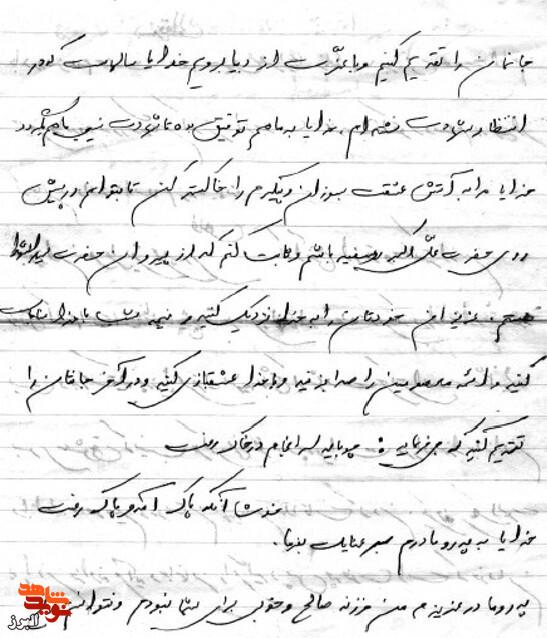 جانمان را تقدیم کنیم و با عزت از دنیا برویم خدایا سالهاست که در
انتظار شهادت نشسته‌ام، خدایا به ما هم توفیق بده تا شهادت نصیب ما هم گردد
خدایا مرا به آتش عشقت بسوزان و پیکرم را خاکستر کن تا بتوانم در پیش
روی حضرت علی اکبر روسفید باشم و ثابت کنم که از پیروان حضرت سیدالشهدا
هستم. عزیزان خودتان را به خدا نزدیک کنید و نیمه شب با خدا
کنید و ائمه معصومین را صدا بزنید و با خدا عشقبازی کنید و در آخر جانتان را
تقدیم کنید که می‌فرماید: چو باید سرانجام در خاک رفت
خوشا آنکه پاک آمد و پاک رفت
خدایا به پدر و مادرم صبر عنایت بفرما.
پدر و مادر عزیزم من فرزند صالح و خوبی برای شما نبودم و نتوانستم
شاهد
نوید
البرز